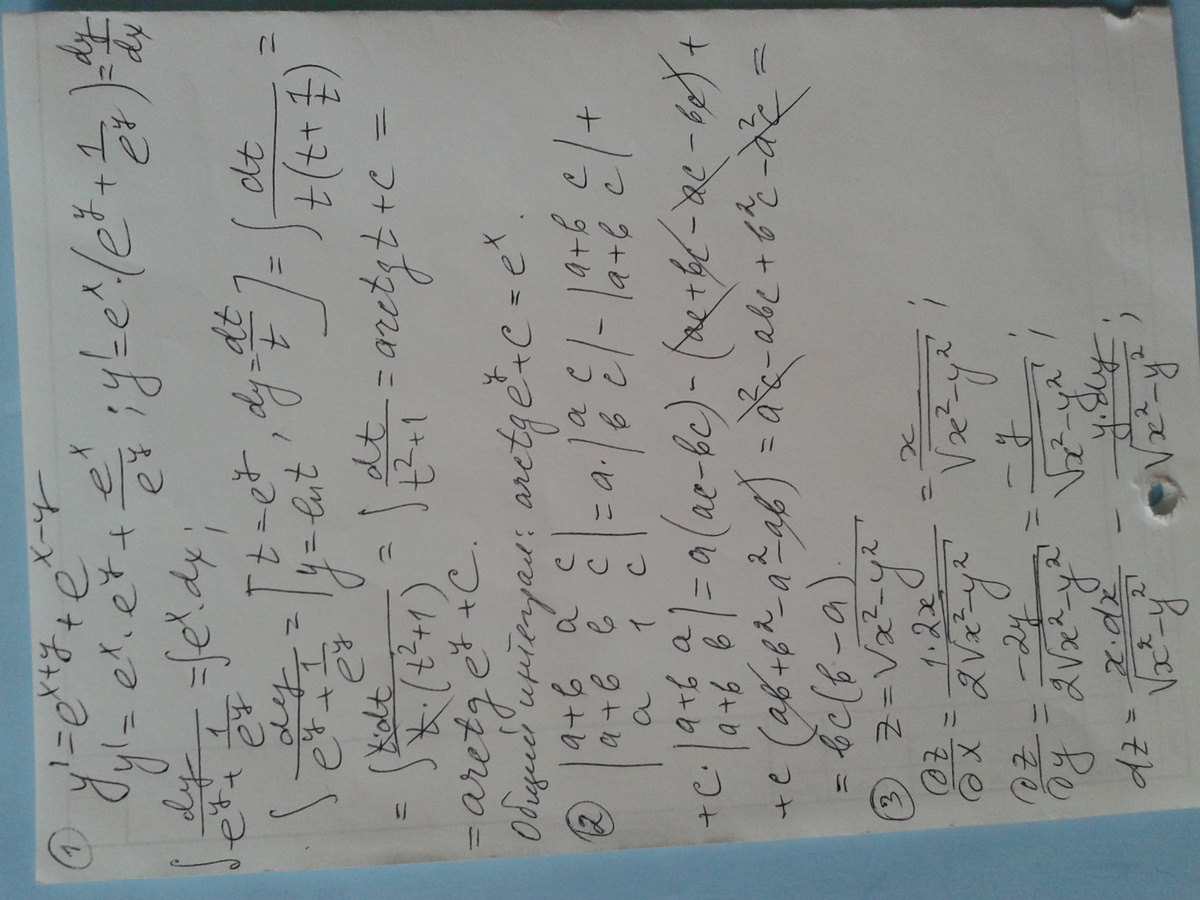 ① y' = e^{x+y} + e^{x-y}
y' = e^x · e^y + \frac{e^x}{e^y} ; y' = e^x · (e^y + \frac{1}{e^y}) = \frac{dy}{dx}
∫ \frac{dy}{e^y + \frac{1}{e^y}} = ∫ e^x · dx ;
∫ \frac{dy}{e^y + \frac{1}{e^y}} = [t = e^y, dy = \frac{dt}{t}
y = ln t] = ∫ \frac{dt}{t(t + \frac{1}{t})} =
= ∫ \frac{t·dt}{t·(t^2+1)} = ∫ \frac{dt}{t^2+1} = arctg t + c =
= arctg e^y + C.
Общий интеграл: arctg e^y + C = e^x.
② |a+b a c
a+b b c
a 1 c| = a · |a c
b c| - |a+b c
a+b c| +
+c · |a+b a
a+b b| = a(ac - bc) - (ac + bc - ac - bc) +
+c (ab + b^2 - a^2 - ab) = a^2c - abc + b^2c - a^2c =
= bc(b - a).
③ z = √{x^2 - y^2}
\frac{∂z}{∂x} = \frac{1·2x}{2√{x^2 - y^2}} = \frac{x}{√{x^2 - y^2}} ;
\frac{∂z}{∂y} = \frac{-2y}{2√{x^2 - y^2}} = \frac{-y}{√{x^2 - y^2}} ;
dz = \frac{x·dx}{√{x^2 - y^2}} - \frac{y·dy}{√{x^2 - y^2}} ;